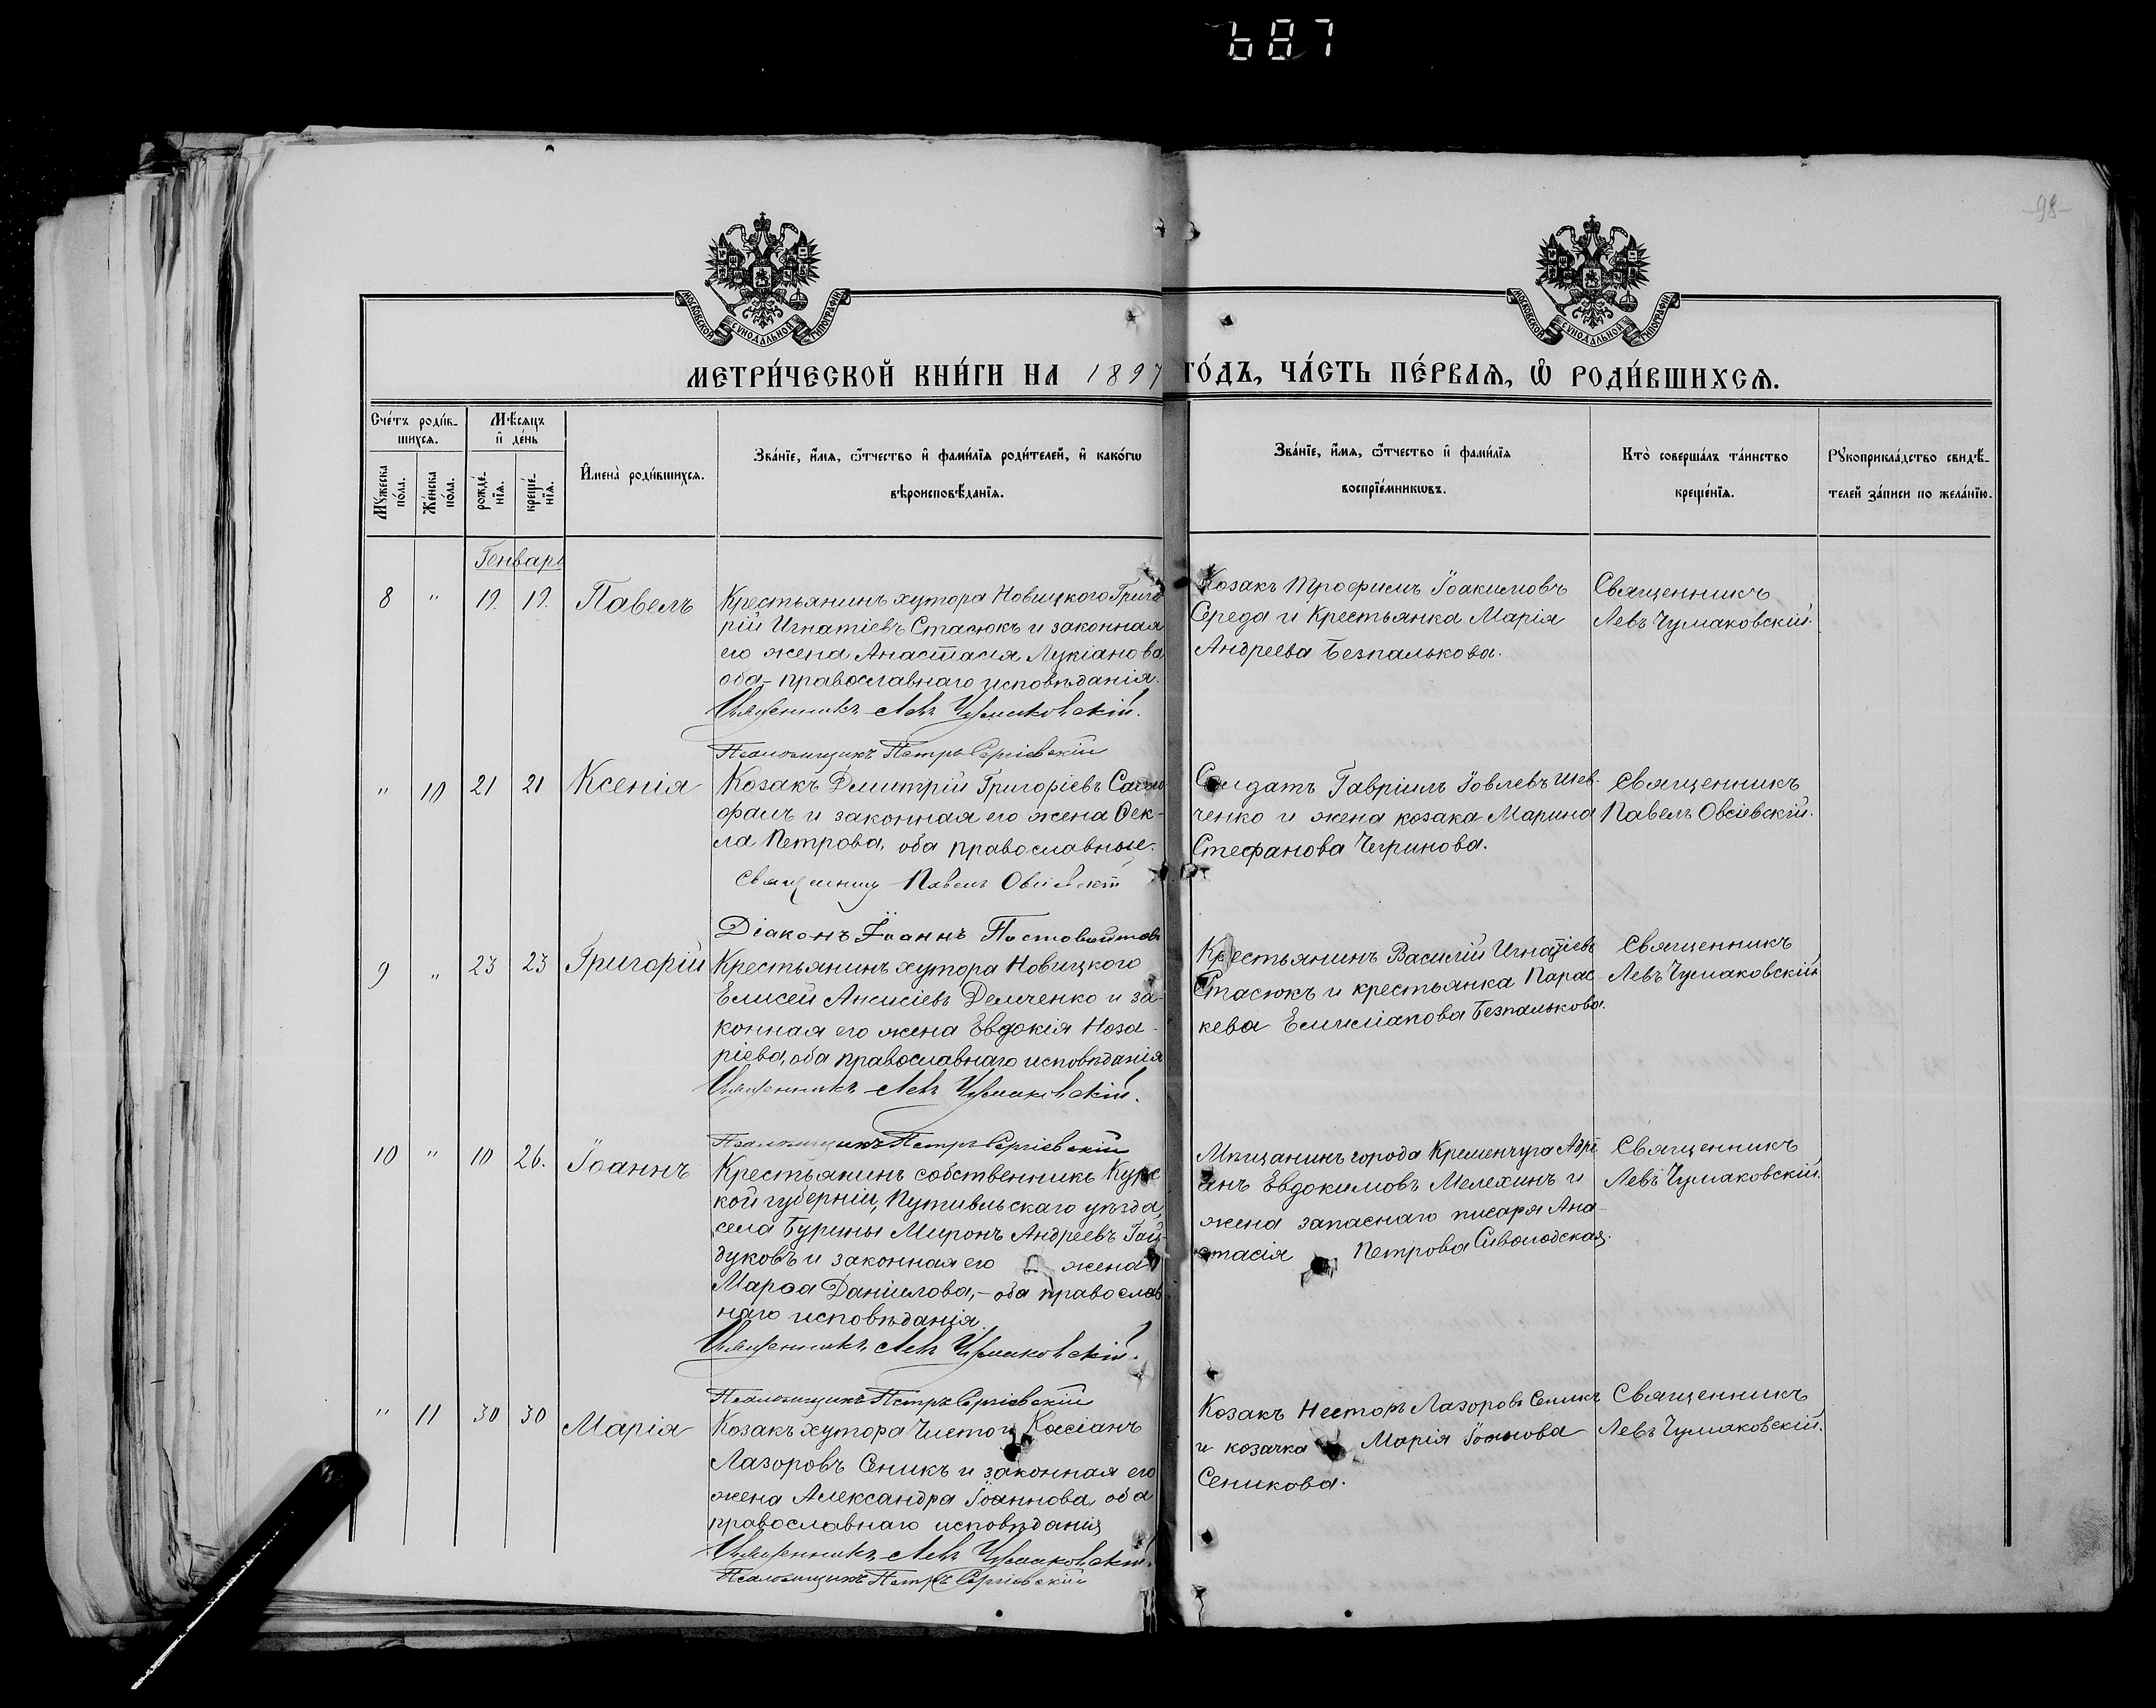 687
98
МОСКОВСКОЙ СѴНОДАЛЬНОЙ ТИПОГРАФІИ
МОСКОВСКОЙ СѴНОДАЛЬНОЙ ТИПОГРАФІИ
МЕТРИ́ЧЕСКОЙ КНИ́ГИ НА 1897 ГО́ДЪ, ЧА́СТЬ ПЕ́РВАѦ, Ѡ РОДИ́ВШИХСѦ.
Сче́тъ роди́в-
шихсѧ.
Мѣ́сѧцъ
и҆ де́нь
Мꙋ́жеска по́ла.
Же́нска по́ла.
рожде́-
нїѧ.
креще́-
нїѧ.
И҆мена̀ роди́вшихсѧ.
Зва́нїе, и҆́мѧ, ѻ҆́тчество и҆ фами́лїѧ роди́телей, и҆ како́гѡ
вѣроисповѣ́данїѧ.
Зва́нїе, и҆́мѧ, ѻ҆́тчество и҆ фами́лїѧ
воспрїе́мникѡвъ.
Кто̀ соверша́лъ та́инство
креще́нїѧ.
Рꙋкоприкла́дство свидѣ́-
телей за́писи по жела́нїю.
Генварь
8 " 19. 19. Павелъ
Крестьянинъ хутора Новицкого Григо
рій Игнатіевъ Стасюкъ и законная
его жена Анастасія Лукіанова
оба- православнаго исповѣданія.
Священникъ Левъ Чумаковскій.
Псаломщикъ Петръ Сергіевскій
Козакъ Трофимъ Іоакимовъ
Середа и Крестьянка Марія
Андреева Безпалькова.
Священникъ
Левъ Чумаковскій.
" 10 21 21 Ксенія
Козакъ Дмитрій Григоріевъ
и законная его жена Ѳек-
ла Петрова, оба православные.
Священникъ Павелъ Овсіевскій
Діаконъ Іоаннъ
Солдатъ Гавріилъ Іовлевъ Шев-
ченко и жена козака Марина
Стефанова Чегринова.
Священникъ
Павелъ Овсіевскій.
9 " 23 23 Григорій
Крестьянинъ хутора Новицкого
Елисей Анисіевъ Демченко и за-
конная его жена Евдокія Наза-
ріева, оба православнаго исповѣданія
Священникъ Левъ Чумаковскій.
Псаломщикъ Петръ Сергіевскій
Крестьянинъ Василій Игнатіевъ
Стасюкъ и крестьянка Парас-
кева Емиліанова Безпалькова.
Священникъ
Левъ Чумаковскій
10 " 10 26. Іоаннъ
Крестьянинъ собственникъ Курс
кой губерніи, Путивльскаго уѣзда,
села Бурины Миронъ Андреевъ Гай-
дуковъ и законная его жена
Марѳа Даніилова,- оба православ
наго исповѣданія.
Священникъ Левъ Чумаковскій.
Псаломщикъ Петръ Сергіевскій
Мѣщанинъ города Кременчуга Адрі
анъ Евдокимовъ Мелехинъ и
жена запаснаго писаря Ана-
стасія Петрова
Священникъ
Левъ Чумаковскій.
" 11 30 30 Марія
Козакъ хутора Касіанъ
Лазоровъ Сеникъ и законная его
жена Александра Іоаннова, оба
православнаго исповѣданія
Священникъ Левъ Чумаковскій.
Псаломщикъ Петръ Сергіевскій
Козакъ Несторъ Лазоровъ Сеникъ
и козачка Марія Іоанова
Сеникова.
Священникъ
Левъ Чумаковскій.